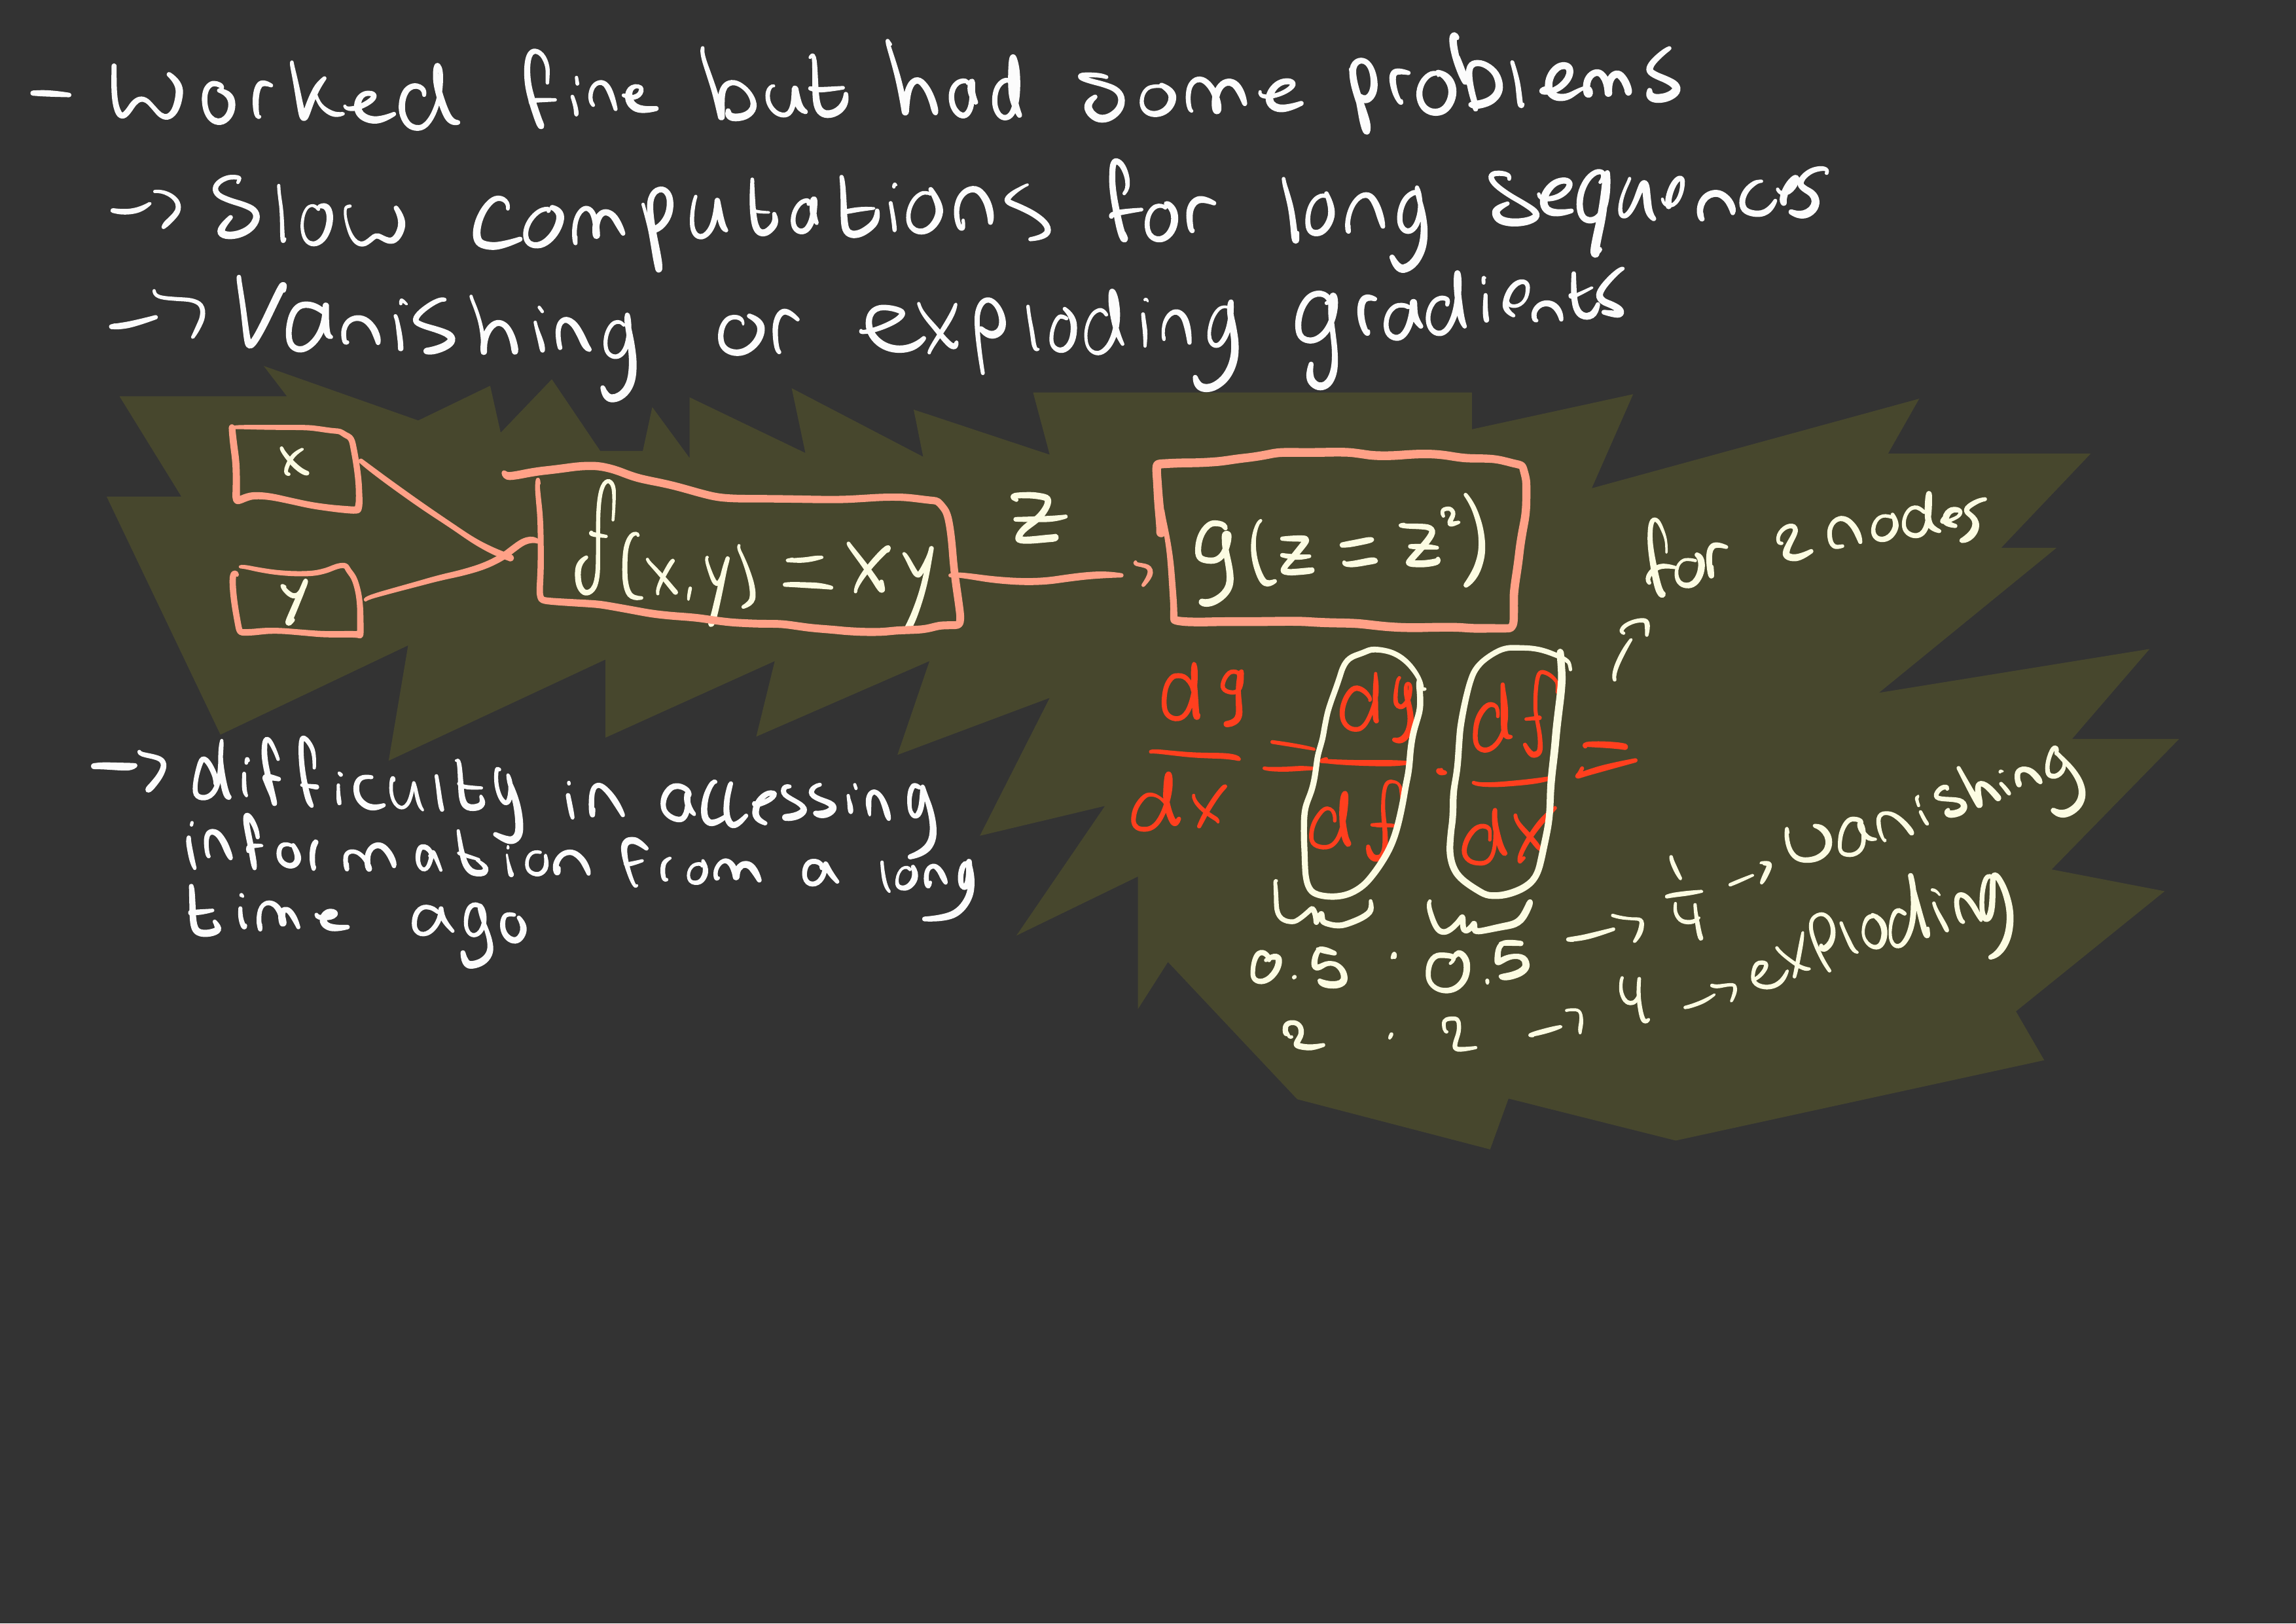 - Worked fine but had some problems
→ Slow computations for long sequences
→ Vanishing or exploding gradients
x
y
f(x,y) = xy
z
g(z = z²)
for 2 nodes
dg/dx = dg/df · df/dx =
0.5 · 0.5 → 1/4 → vanishing
2 · 2 → 4 → exploding
→ difficulty in accessing
information from a long
time ago